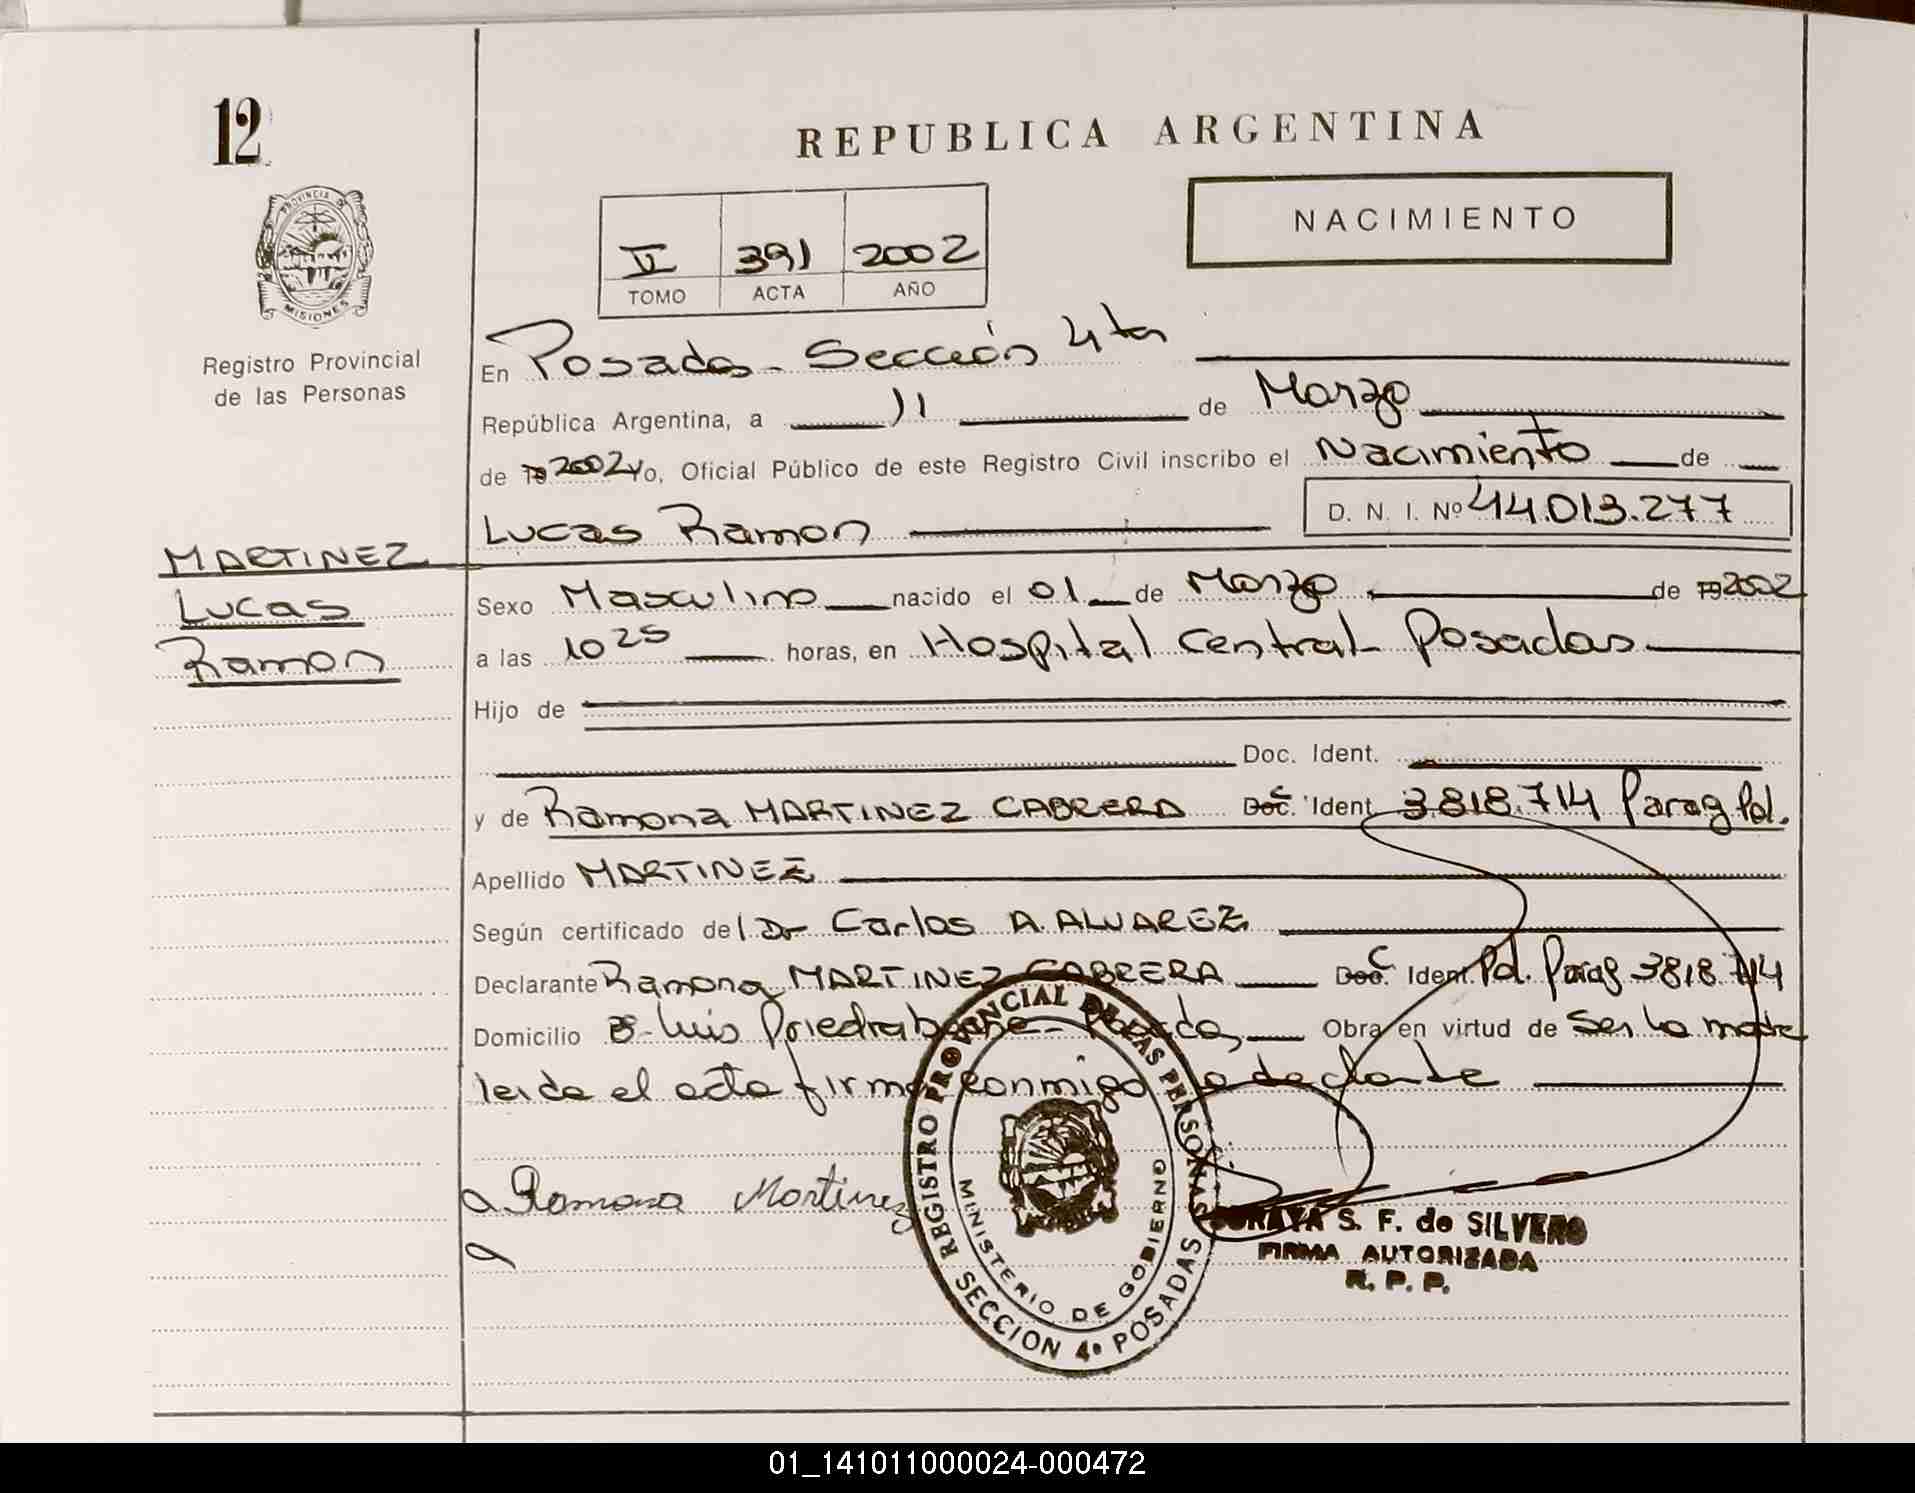 12
REPUBLICA ARGENTINA
NACIMIENTO
PROVINCIA DE
MISIONES
Registro Provincial
de las Personas
391 2002
TOMO ACTA AÑO
En Posadas - Sección 4ta
República Argentina, a 11 de Marzo
de 19 2002 yo, Oficial Público de este Registro Civil inscribo el Nacimiento de
Lucas Ramon D. N. I. Nº 44.013.277
MARTINEZ
Lucas
Ramon
Sexo Masculino nacido el 01 de Marzo de 19 2002
a las 10 25 horas, en Hospital Central - Posadas
Hijo de
Doc. Ident.
y de Ramona MARTINEZ CABRERA Doc. Ident. C 3.818.714 Parag Pol.
Apellido MARTINEZ
Según certificado del Dr Carlos A. ALVAREZ
Declarante Ramona MARTINEZ CABRERA Doc. Ident. C Pol. Parag 3818.714
Domicilio B- Luis Piedrabuena - Posadas Obra en virtud de Ser la madre
leida el acta firma conmigo la declarante
Ramona Martinez
REGISTRO PROVINCIAL DE LAS PERSONAS
MINISTERIO DE GOBIERNO
SECCION 4ª POSADAS
S. F. de SILVERO
FIRMA AUTORIZADA
R. P. P.
01_141011000024-000472